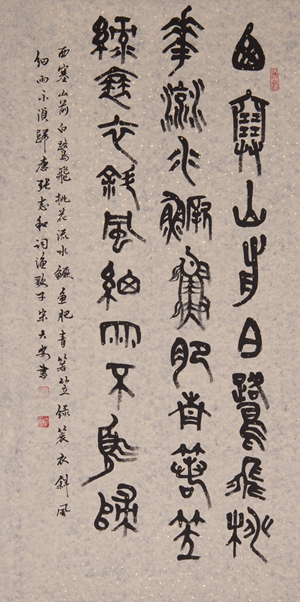 西塞山前白鷺飛桃
華流水鱖魚肥青箬笠
綠蓑衣斜風細雨不須歸
西塞山前白鷺飛桃花流水鱖魚肥青箬笠綠蓑衣斜風
細雨不須歸唐張志和詞漁歌子宋安書